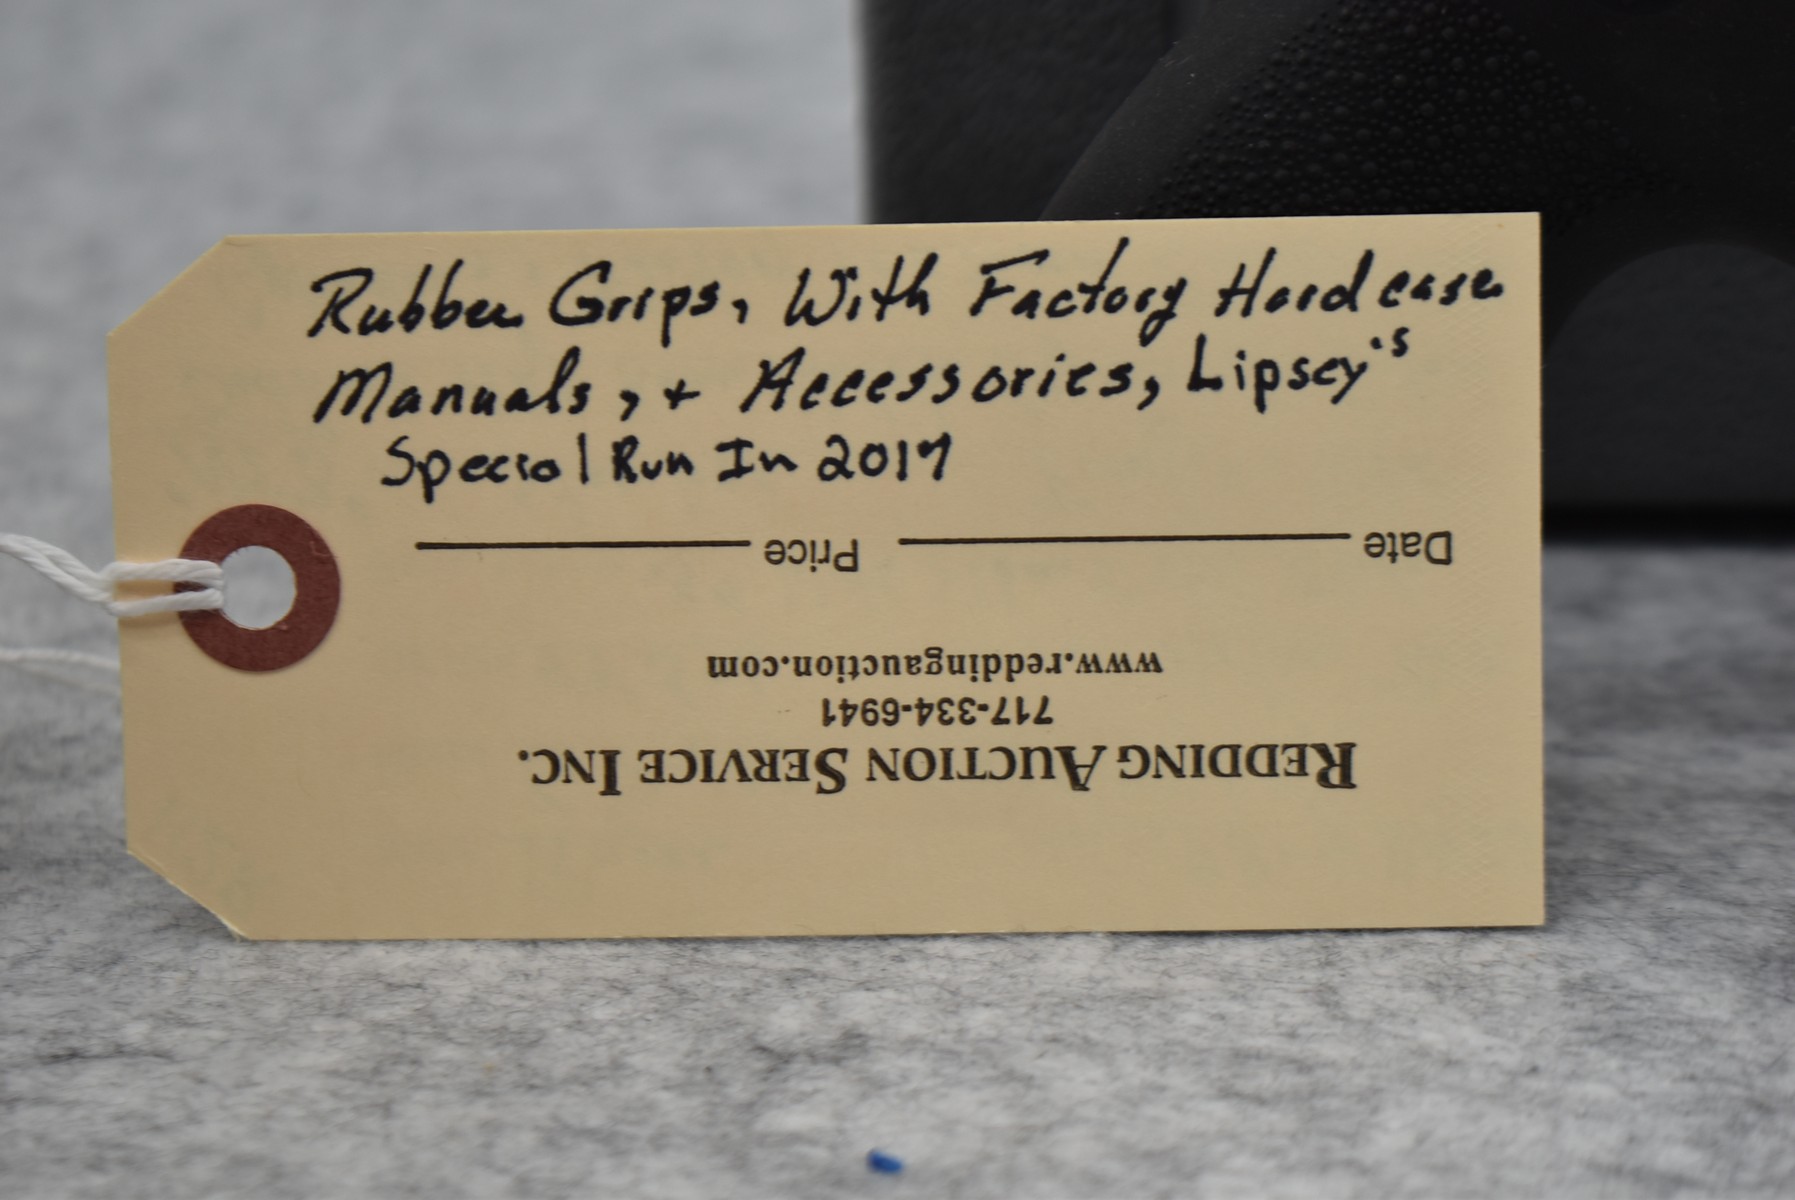 Rubber Grips, With Factory Hardcase
Manuals, + Accessories, Lipsey's
Special Run In 2017
Date Price
www.reddingauction.com
717-334-6941
REDDING AUCTION SERVICE INC.